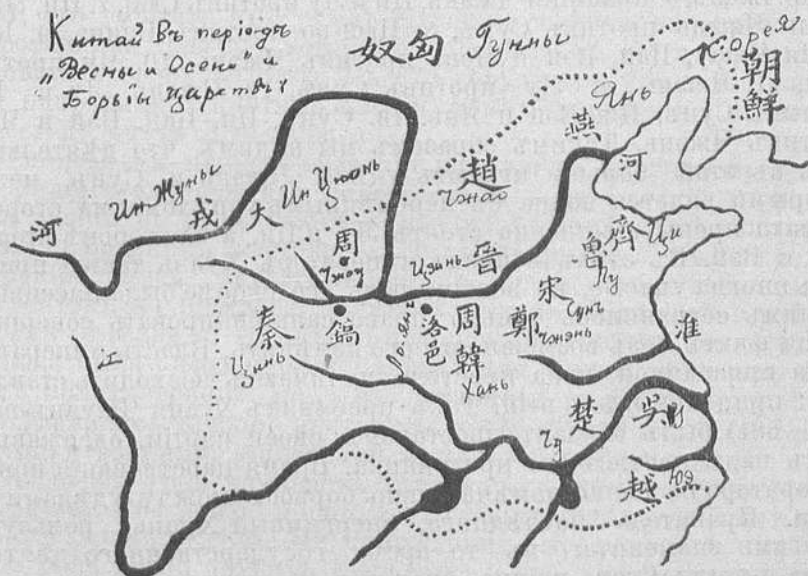 Китай Въ періодъ
„Весны и Осени" и
Борьбы Царствъ
奴匈 Гунны
Корея
朝鮮
Янь
燕
河
趙
Чжао
河
Ин Жуны
戎
大
Ин Цюань
周
Чжоу
Цзинь
晉
齊
Ци
魯
Лу
宋
Сунъ
鄭
Чжэнь
秦
Цинь
鎬
洛邑
周
韓
Хань
淮
江
楚
Чу
吳
越
Юэ